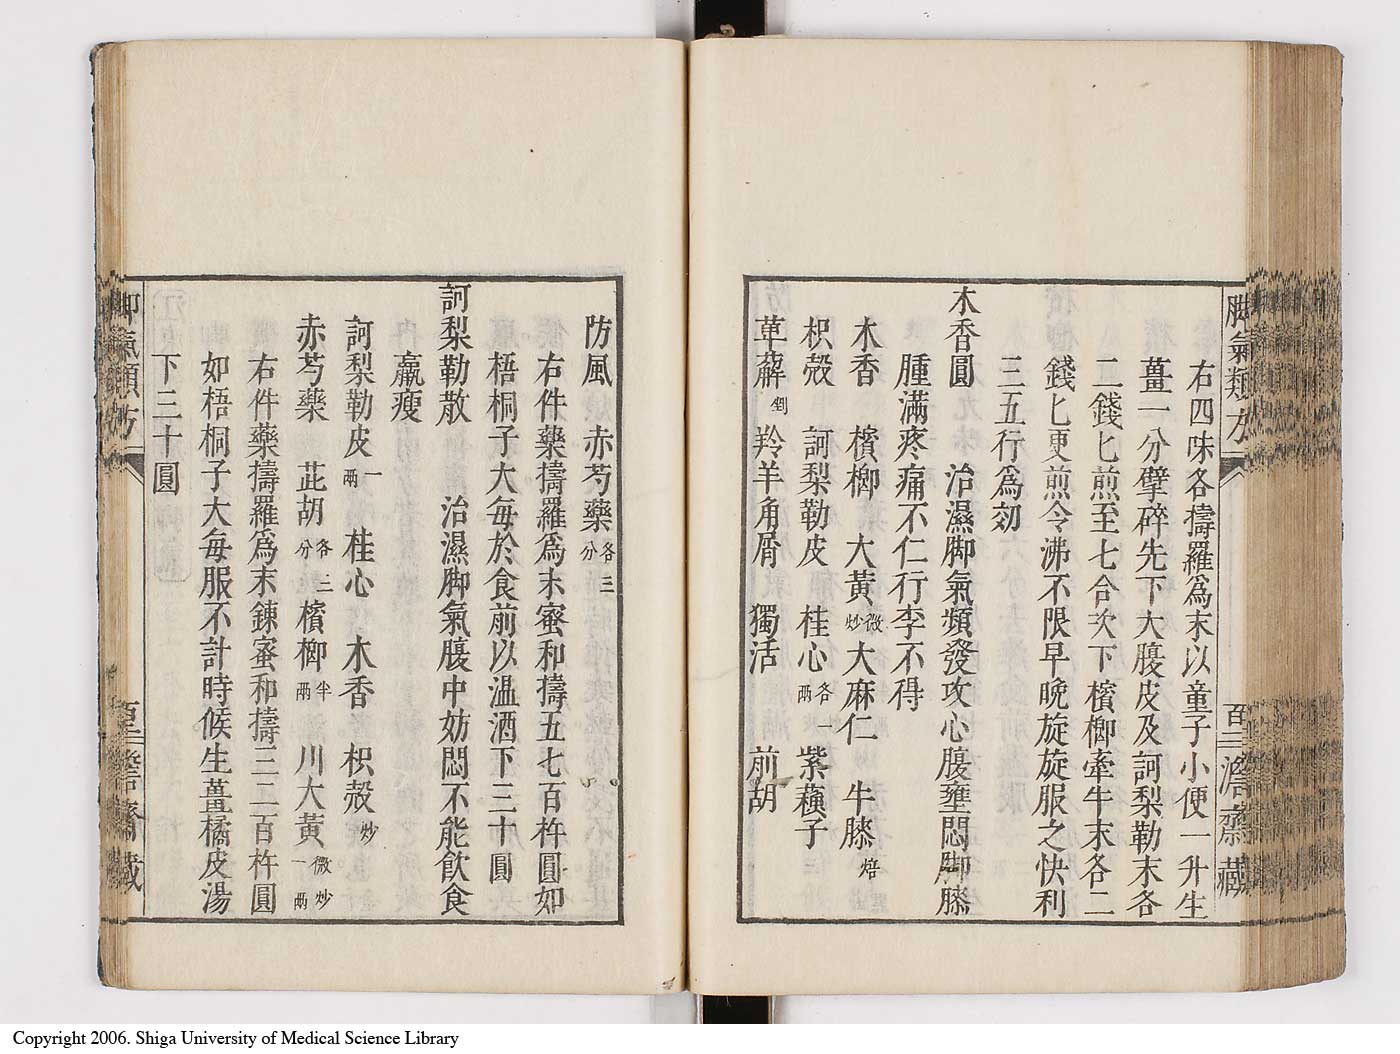 脚氣類方
百二澹齋藏
右四味各擣羅爲末以童子小便一升生
薑一分擘碎先下大腹皮及訶梨勒末各
二錢匕煎至七合次下檳榔牽牛末各二
錢匕更煎令沸不限早晩旋旋服之快利
三五行爲効
木香圓　治濕脚氣頻發攻心腹壅悶脚膝
腫滿疼痛不仁行李不得
木香　檳榔　大黃微炒　大麻仁　牛膝焙
枳殻　訶梨勒皮　桂心各一兩　紫蘓子
萆薢剉　羚羊角屑　獨活　前胡
防風　赤芍藥各三分
右件藥擣羅爲末蜜和擣五七百杵圓如
梧桐子大毎於食前以温酒下三十圓
訶梨勒散　治濕脚氣腹中妨悶不能飮食
羸瘦
訶梨勒皮一兩　桂心　木香　枳殻炒
赤芍藥　茈胡各二分　檳榔半兩　川大黃微炒一兩
右件藥擣羅爲末鍊蜜和擣三二百杵圓
如梧桐子大毎服不計時候生薑橘皮湯
下三十圓
脚氣類方
Copyright 2006. Shiga University of Medical Science Library